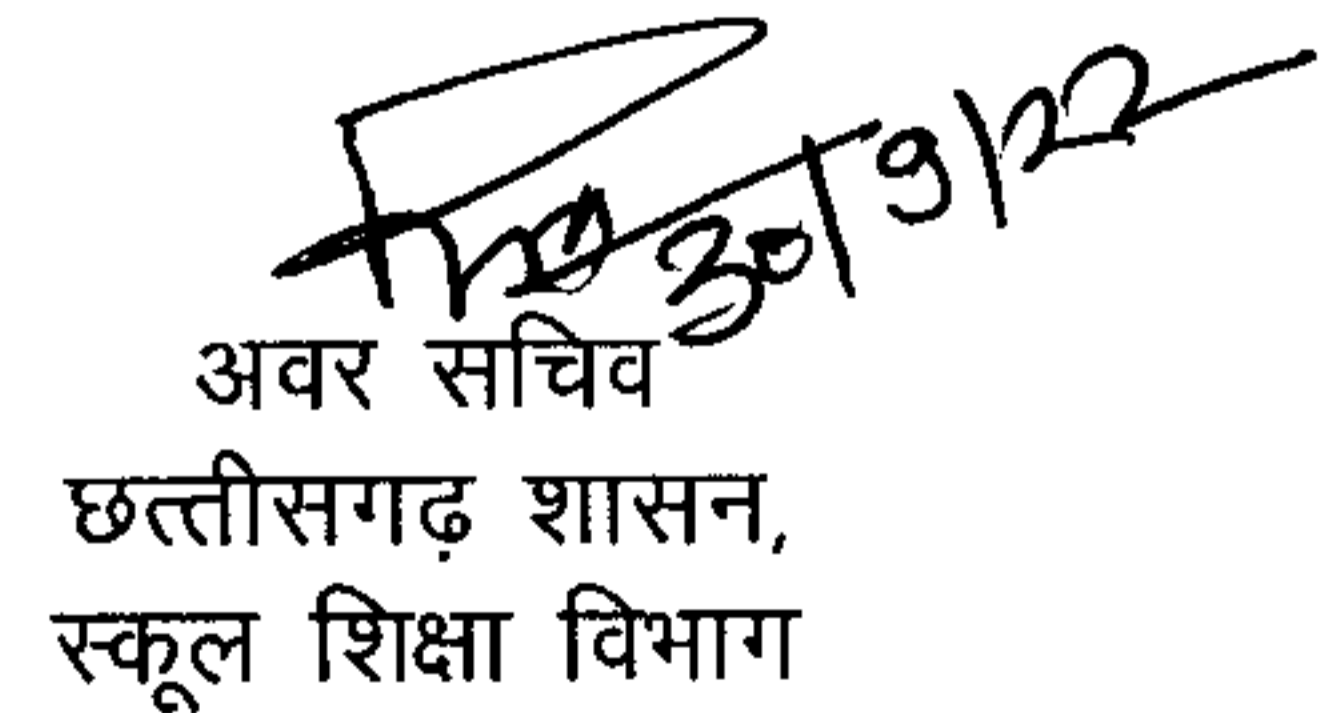 30/9/22
अवर सचिव
छत्तीसगढ़ शासन,
स्कूल शिक्षा विभाग